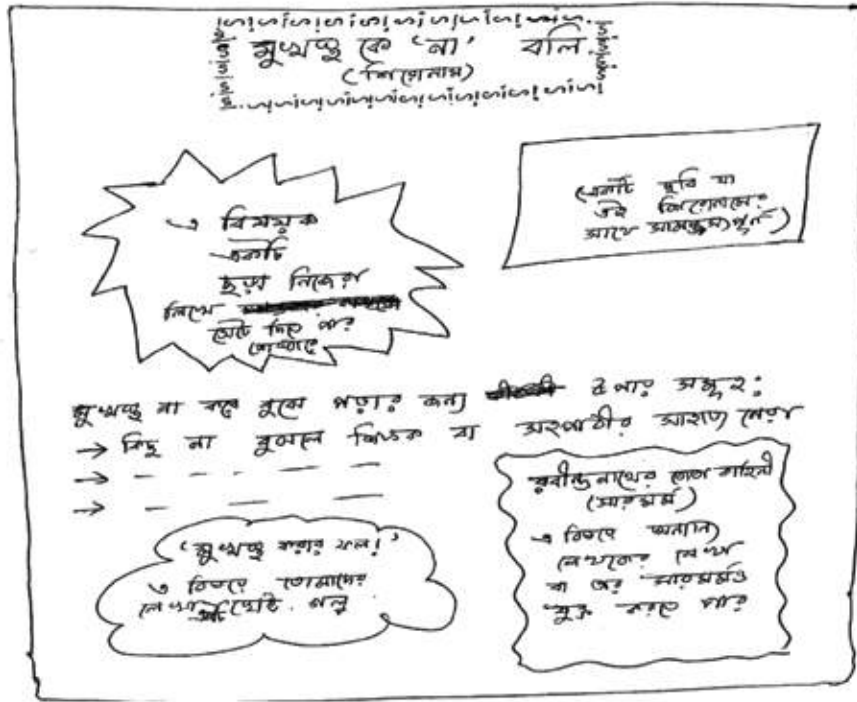 মুখস্থ কে ‘না’ বলি
(শিরোনাম)
এ বিষয়ক
একটি
ছড়া নিজেরা
লিখে
সেটে দিতে পার
এখানে
(একটি ছবি যা
এই শিরোনামের
সাথে সামঞ্জস্যপূর্ণ)
মুখস্থ না করে বুঝে পড়ার জন্য উপায় সমূহ:
→ কিছু না বুঝলে শিক্ষক বা সহপাঠীর সাহায্য নেয়া
→ - - - -
→ - - - -
‘মুখস্থ করার ফল!’
এ বিষয়ে তোমাদের
লেখা ছোট গল্প
রবীন্দ্রনাথের তোতা কাহিনী
(সারমর্ম)
এ বিষয়ে অন্যান্য
লেখকের লেখা
বা তার সারমর্মও
যুক্ত করতে পার